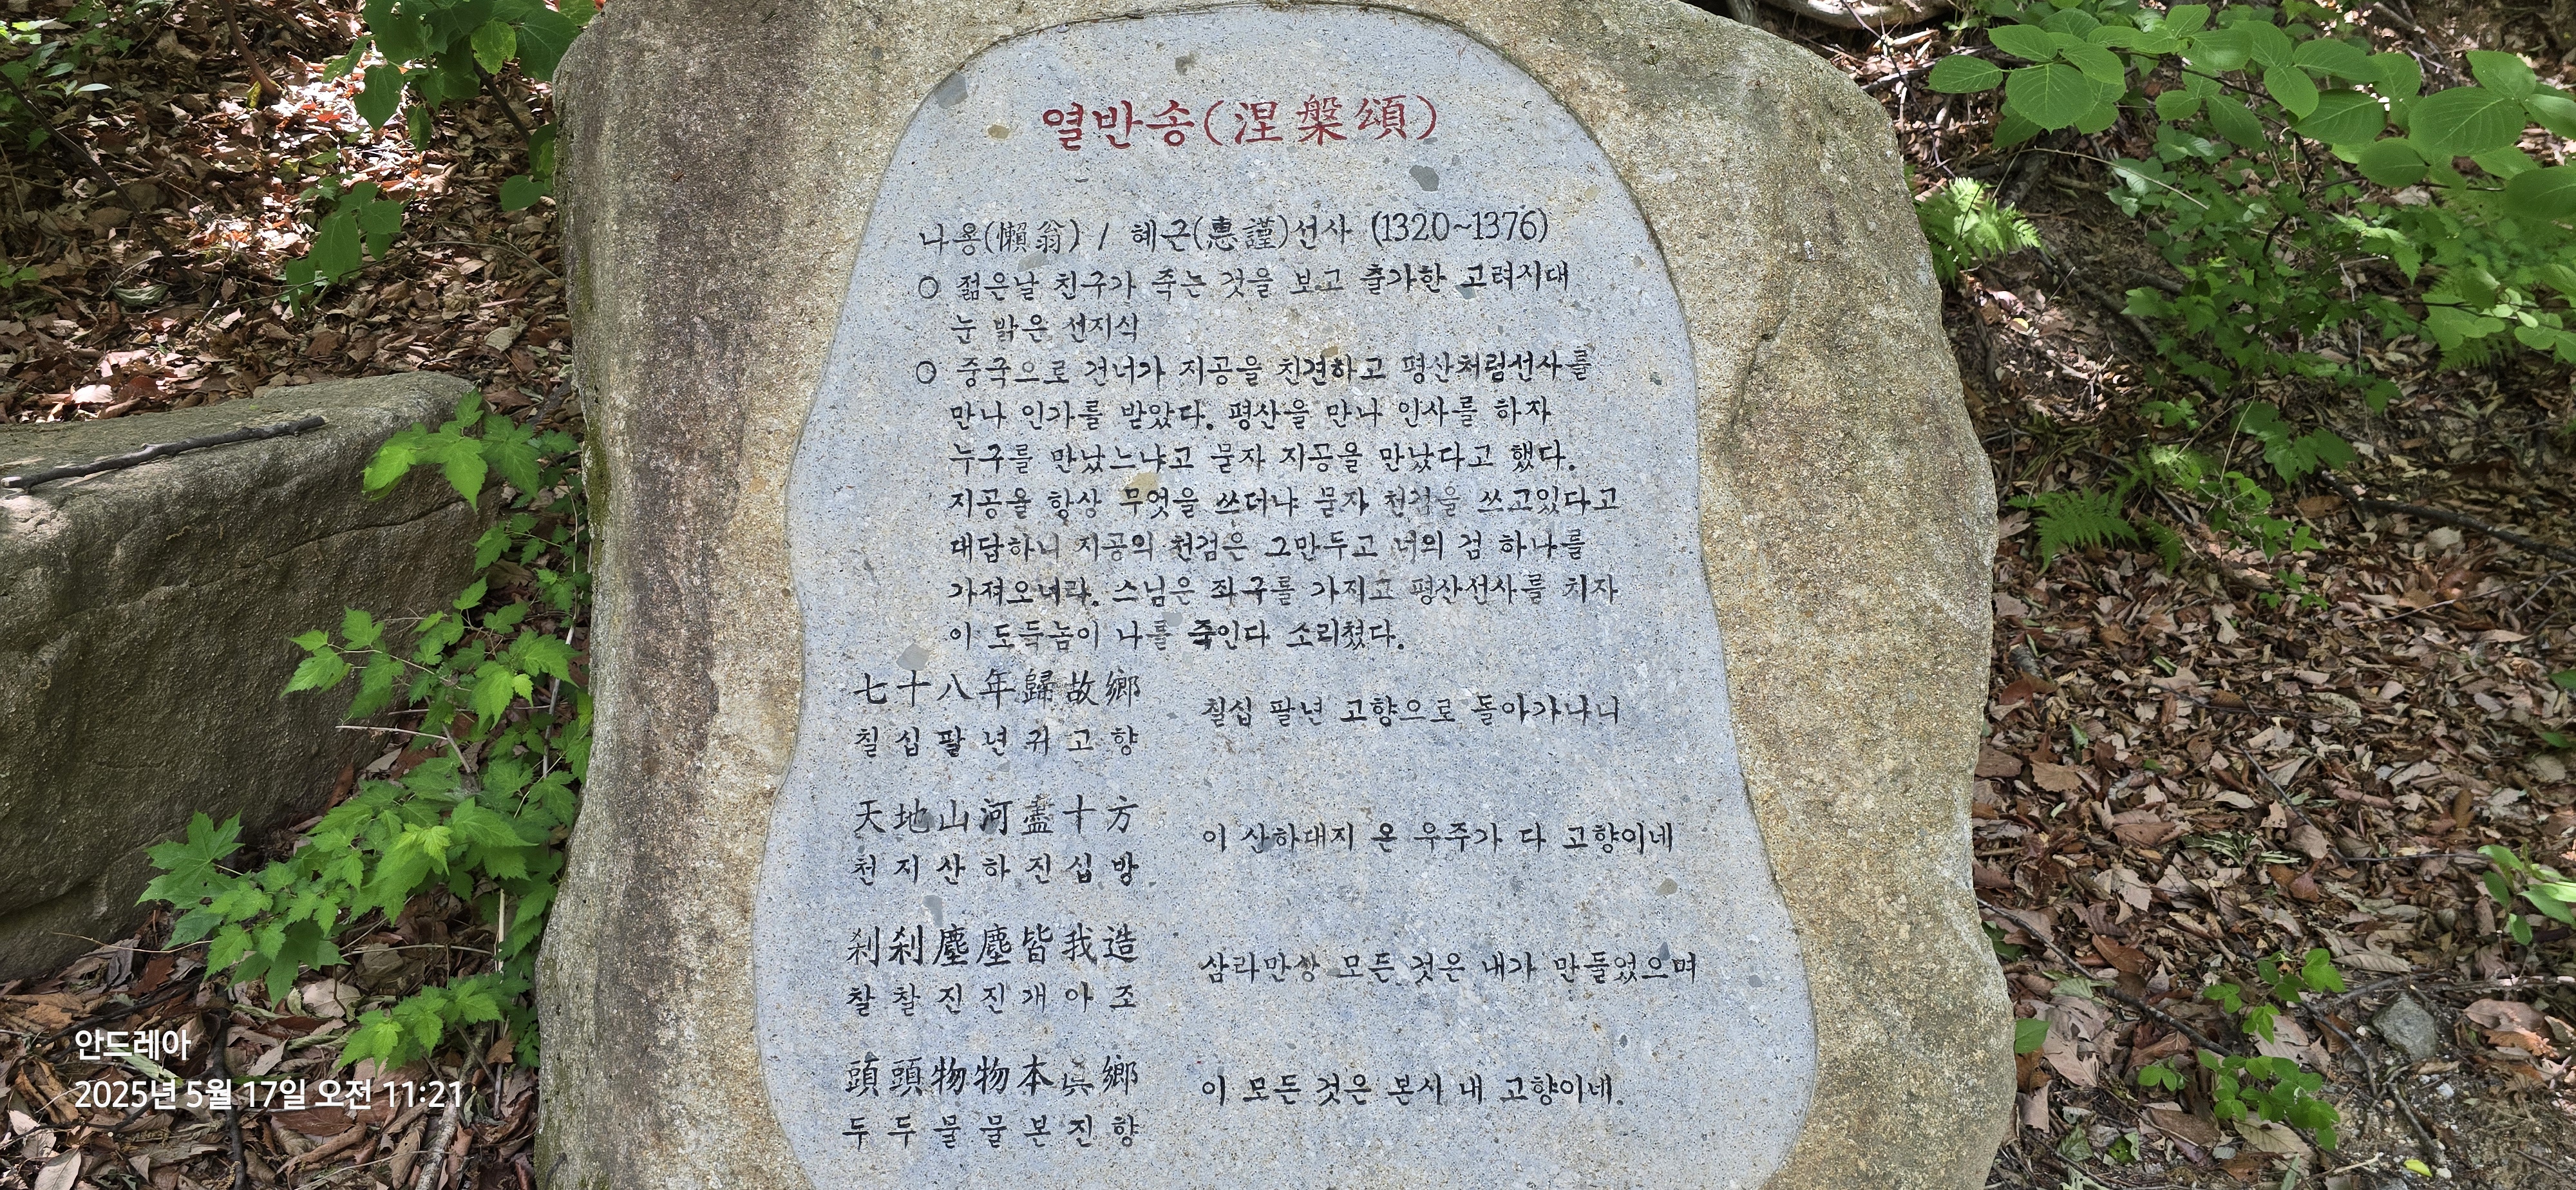 열반송(涅槃頌)
나옹(懶翁) / 혜근(惠謹)선사 (1320~1376)
○ 젊은날 친구가 죽는 것을 보고 출가한 고려시대
눈 밝은 선지식
○ 중국으로 건너가 지공을 친견하고 평산처림선사를
만나 인가를 받았다. 평산을 만나 인사를 하자
누구를 만났느냐고 묻자 지공을 만났다고 했다.
지공을 항상 무엇을 쓰더냐 묻자 천검을 쓰고있다고
대답하니 지공의 천검은 그만두고 너의 검 하나를
가져오너라. 스님은 좌구를 가지고 평산선사를 치자
이 도둑놈이 나를 죽인다 소리쳤다.
七十八年歸故鄉
칠십팔년귀고향
칠십 팔년 고향으로 돌아가나니
天地山河盡十方
천지산하진십방
이 산하대지 온 우주가 다 고향이네
刹刹塵塵皆我造
찰찰진진개아조
삼라만상 모든 것은 내가 만들었으며
頭頭物物本眞鄉
두두물물본진향
이 모든 것은 본시 내 고향이네.
안드레아
2025년 5월 17일 오전 11:21